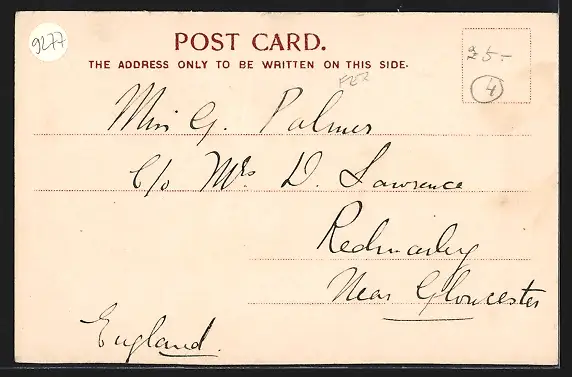 9277
POST CARD.
THE ADDRESS ONLY TO BE WRITTEN ON THIS SIDE.
25-
4
Miss G. Palmer
C/o Mrs D. Lawrence
Redmarley
Near Gloucester
England.